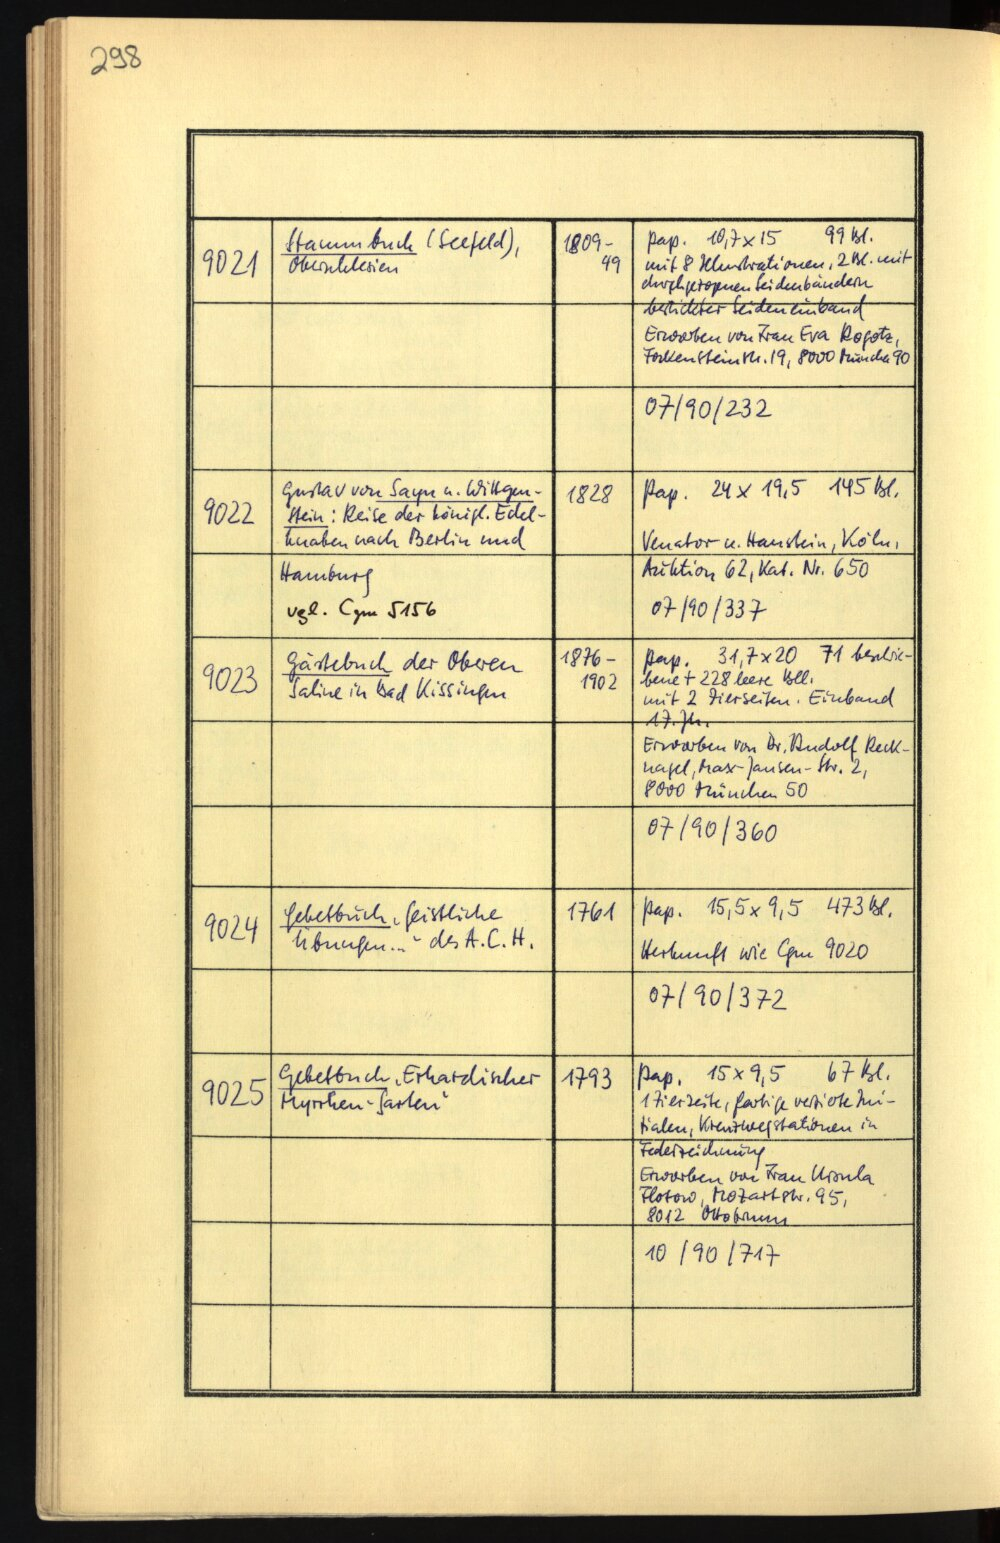 298
9021
Stammbuch (Seefeld),
Oberschlesien
1809-
49
Pap. 10,7 x 15 99 Bl.
mit 8 Illustrationen, 2 Bl. mit
durchgezogenen Seidenbändern
bestickter Seideneinband
Erworben von Frau Eva Rogotz,
Falkensteinstr. 19, 8000 München 90
07/90/232
9022
Gustav von Sayn u. Wittgen-
stein: Reise der königl. Edel-
knaben nach Berlin und
Hamburg
vgl. Cgm 5156
1828
Pap. 24 x 19,5 145 Bl.
Venator u. Hanstein, Köln,
Auktion 62, Kat. Nr. 650
07/90/337
9023
Gästebuch der Oberen
Saline in Bad Kissingen
1876-
1902
Pap. 31,7 x 20 71 beschrie-
bene + 228 leere Bll.
mit 2 Zierseiten. Einband
17. Jh.
Erworben von Dr. Rudolf Reck-
nagel, Max-Jansen-Str. 2,
8000 München 50
07/90/360
9024
Gebetbuch „Geistliche
Übungen..." des A.C.H.
1761
Pap. 15,5 x 9,5 473 Bl.
Herkunft wie Cgm 9020
07/90/372
9025
Gebetbuch „Erhardischer
Myrrhen-Garten"
1793
Pap. 15 x 9,5 67 Bl.
1 Zierseite, farbige verzierte Ini-
tialen, Kreuzwegstationen in
Federzeichnung
Erworben von Frau Ursula
Flotow, Mozartstr. 95,
8012 Ottobrunn
10/90/717